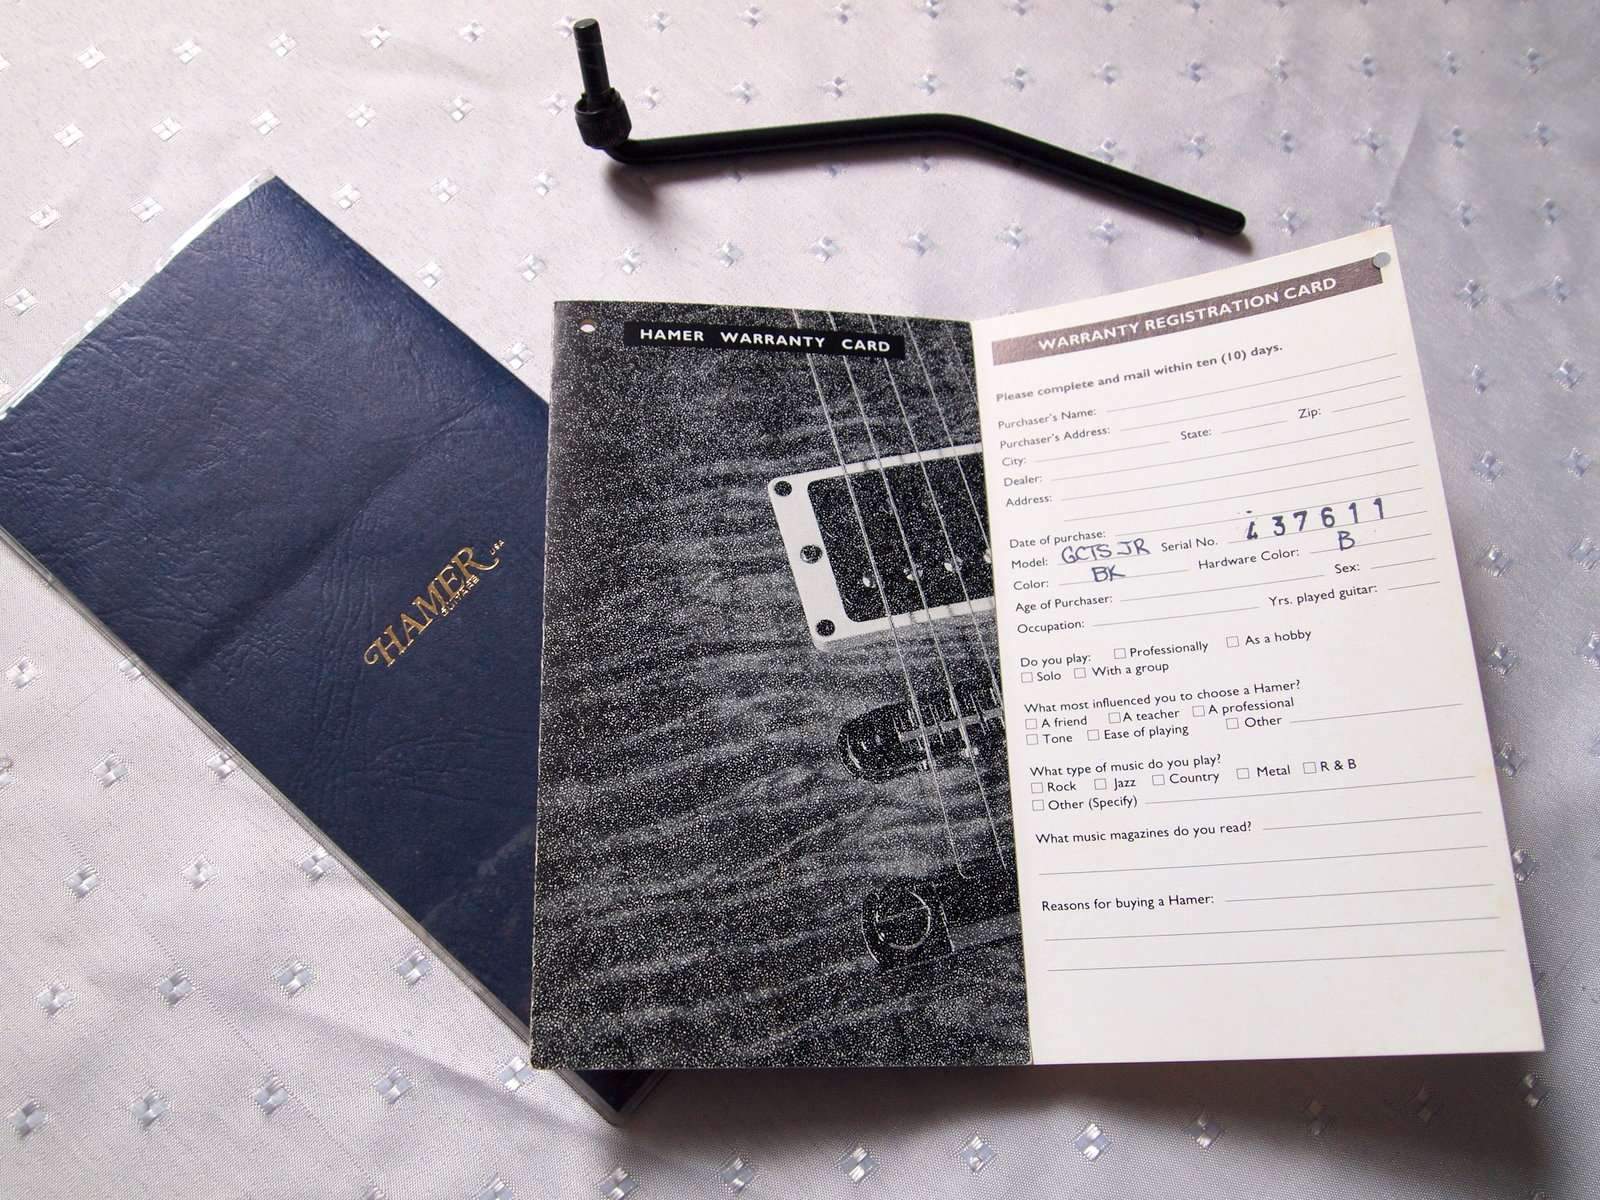 HAMER USA
GUITARS
HAMER WARRANTY CARD
WARRANTY REGISTRATION CARD
Please complete and mail within ten (10) days.
Purchaser's Name:
Purchaser's Address:
City: State: Zip:
Dealer:
Address:
Date of purchase:
Model: GCTS JR Serial No. 437611
Color: BK Hardware Color: B
Age of Purchaser: Sex:
Occupation: Yrs. played guitar:
Do you play: Professionally As a hobby
Solo With a group
What most influenced you to choose a Hamer?
A friend A teacher A professional
Tone Ease of playing Other
What type of music do you play?
Rock Jazz Country Metal R & B
Other (Specify)
What music magazines do you read?
Reasons for buying a Hamer: